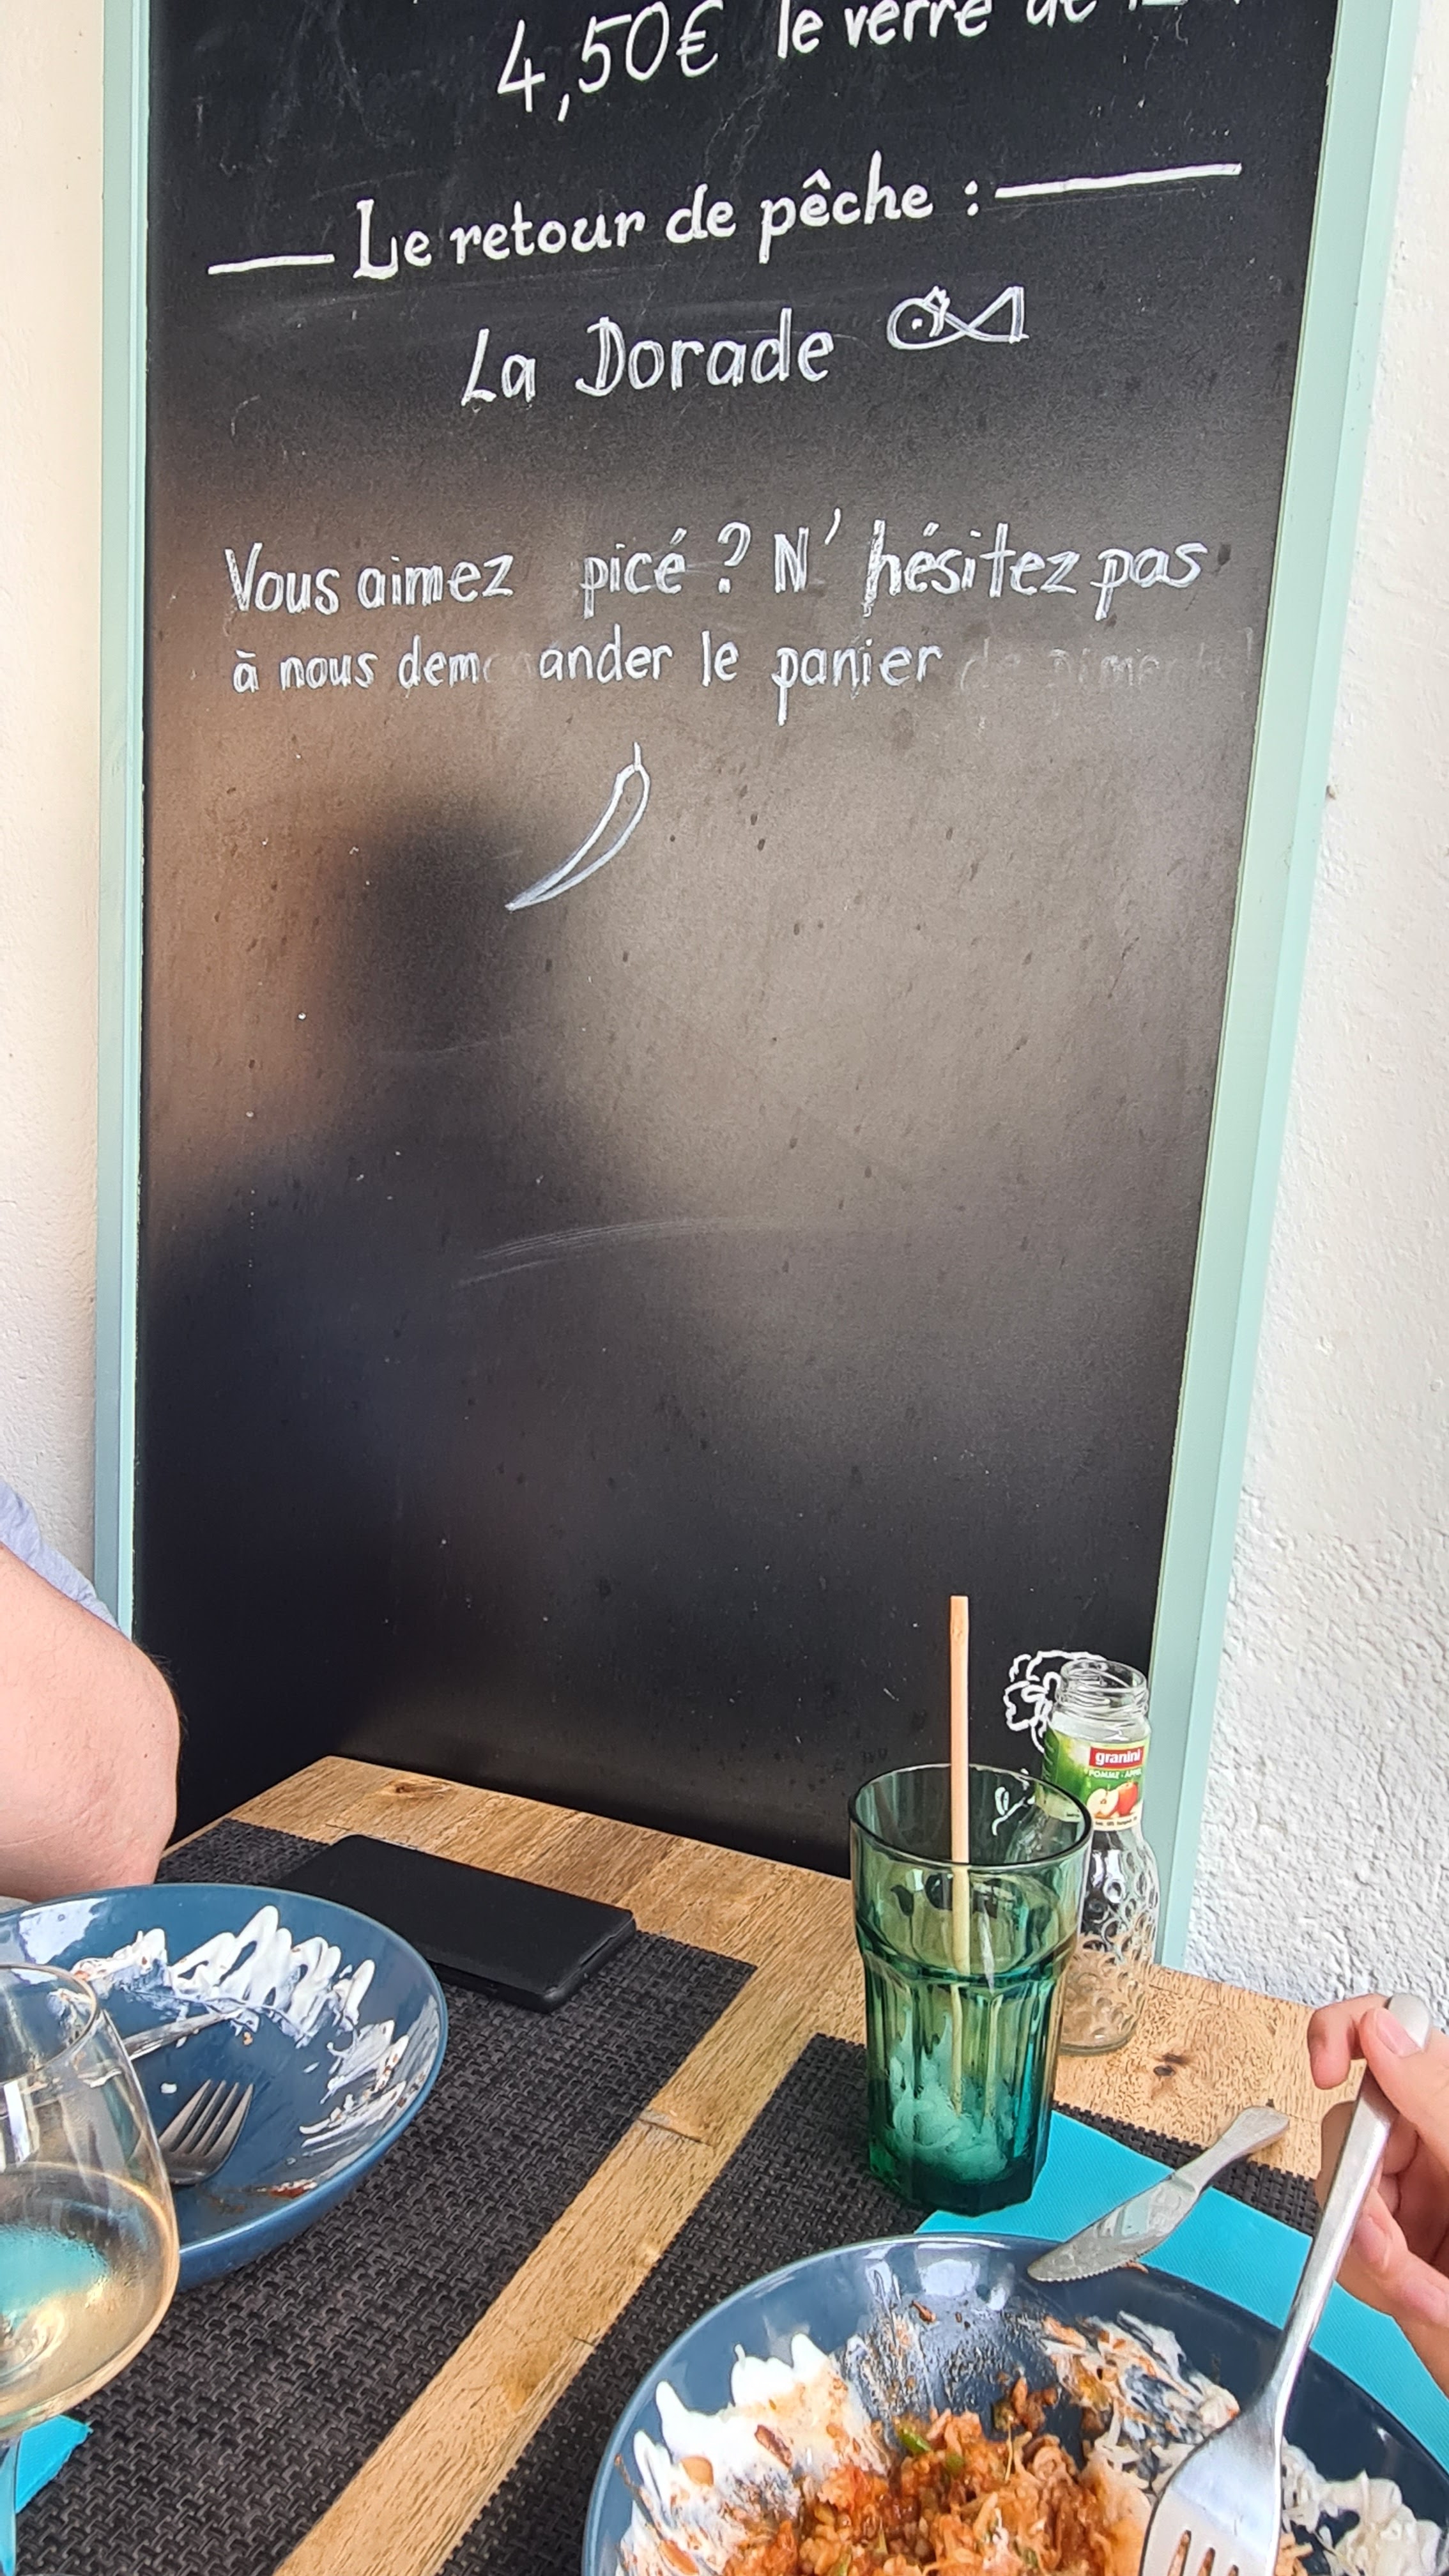 4,50€ le verre de
Le retour de pêche :
La Dorade
Vous aimez picé ? N'hésitez pas
à nous demander le panier de piments
granini
POMME - APFEL